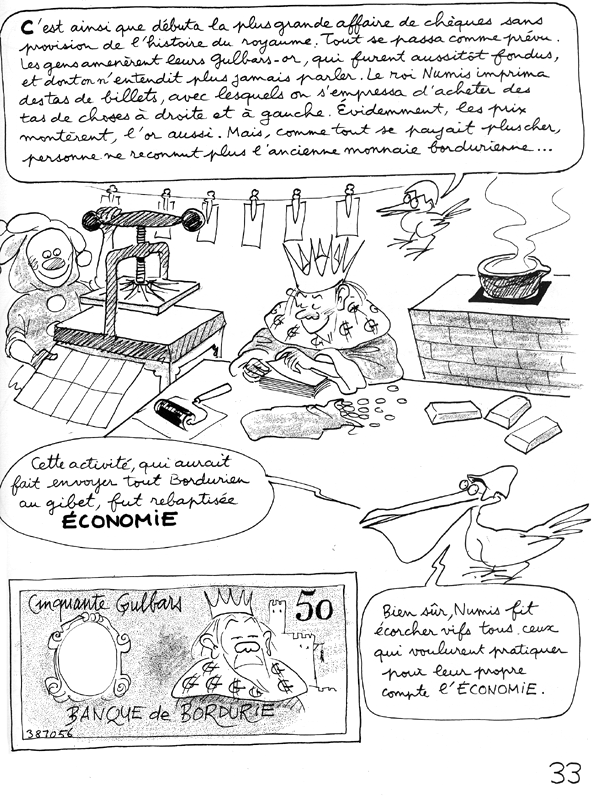 C'est ainsi que débuta la plus grande affaire de chèques sans
provision de l'histoire du royaume. Tout se passa comme prévu.
Les gens amenèrent leurs Gulbars-or, qui furent aussitôt fondus,
et dont on n'entendit plus jamais parler. Le roi Numis imprima
des tas de billets, avec lesquels on s'empressa d'acheter des
tas de choses à droite et à gauche. Évidemment, les prix
montèrent, l'or aussi. Mais, comme tout se payait plus cher,
personne ne reconnut plus l'ancienne monnaie bordurienne...
Cette activité, qui aurait
fait envoyer tout Bordurien
au gibet, fut rebaptisée
ÉCONOMIE
Cinquante Gulbars
50
BANQUE de BORDURIE
387056
Bien sûr, Numis fit
écorcher vifs tous ceux
qui voulurent pratiquer
pour leur propre
compte l'ÉCONOMIE.
33